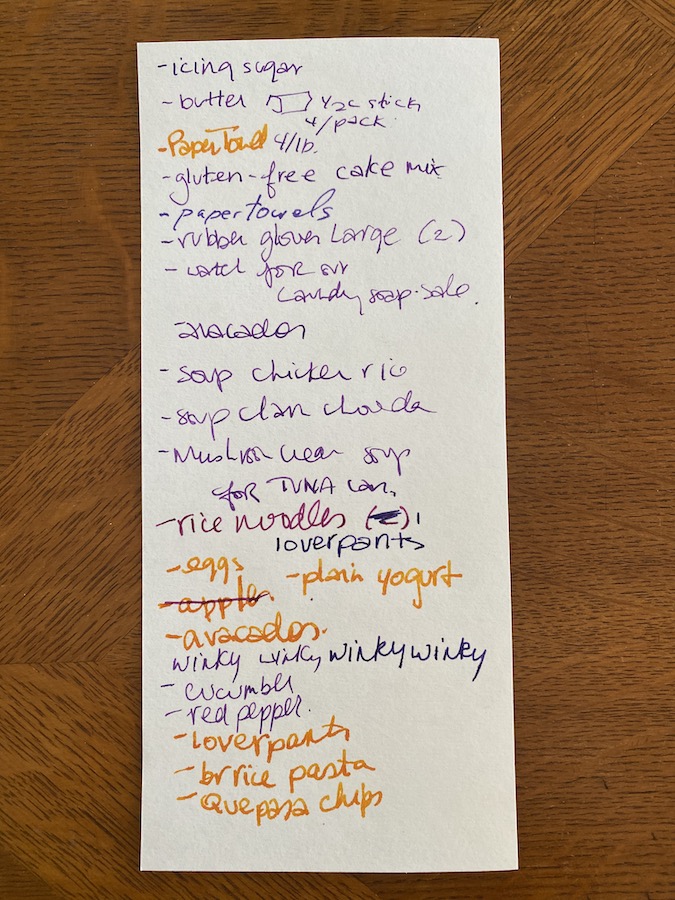 - icing sugar
- butter 1/2c stick
4/pack
- Paper Towel 4/lb.
- gluten-free cake mix
- paper towels
- rubber gloves Large (2)
- watch for our
Laundry soap-sale.
avacados
- soup chicken rice
- soup clam chowda
- Mushroom cream soup
for TUNA can,
- rice noodles (2) 1
loverpants
- eggs
- plain yogurt
- apples
- avacados.
WINKY WINKY WINKY WINKY
- cucumber
- red pepper.
- loverpants
- br rice pasta
- Quepasa chips